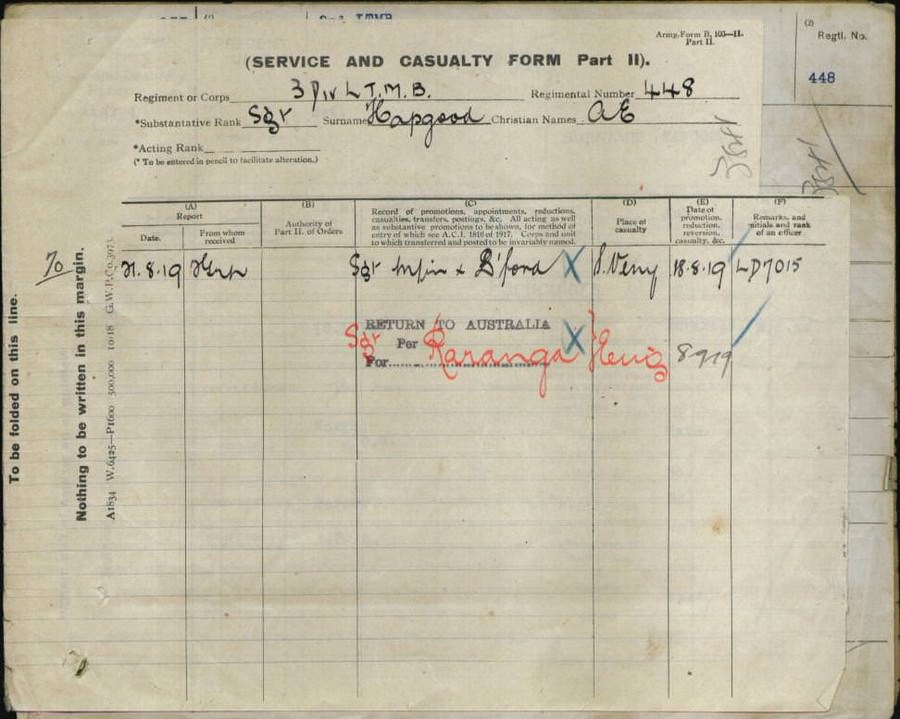 (2)
Regtl. No.
448
Army Form B. 103—II.
Part II.
(SERVICE AND CASUALTY FORM Part II).
Regiment or Corps 3 Div L T.M.B. Regimental Number 448
*Substantative Rank Sgt Surname Hapgood Christian Names A E
*Acting Rank
(* To be entered in pencil to facilitate alteration.)
(A)
Report
Date.
From whom
received
(B)
Authority of
Part II. of Orders
(C)
Record of promotions, appointments, reductions,
casualties, transfers, postings, &c. All acting as well
as substantive promotions to be shown, for method of
entry of which see A.C.I. 1816 of 1917. Corps and unit
to which transferred and posted to be invariably named.
(D)
Place of
casualty
(E)
Date of
promotion,
reduction,
reversion,
casualty, &c.
(F)
Remarks, and
initials and rank
of an officer
.8.19 Sgt B'ford X 18.8.19 LD7015
RETURN TO AUSTRALIA X
Sgt Per Raranga 8 9 19
For
To be folded on this line.
Nothing to be written in this margin.